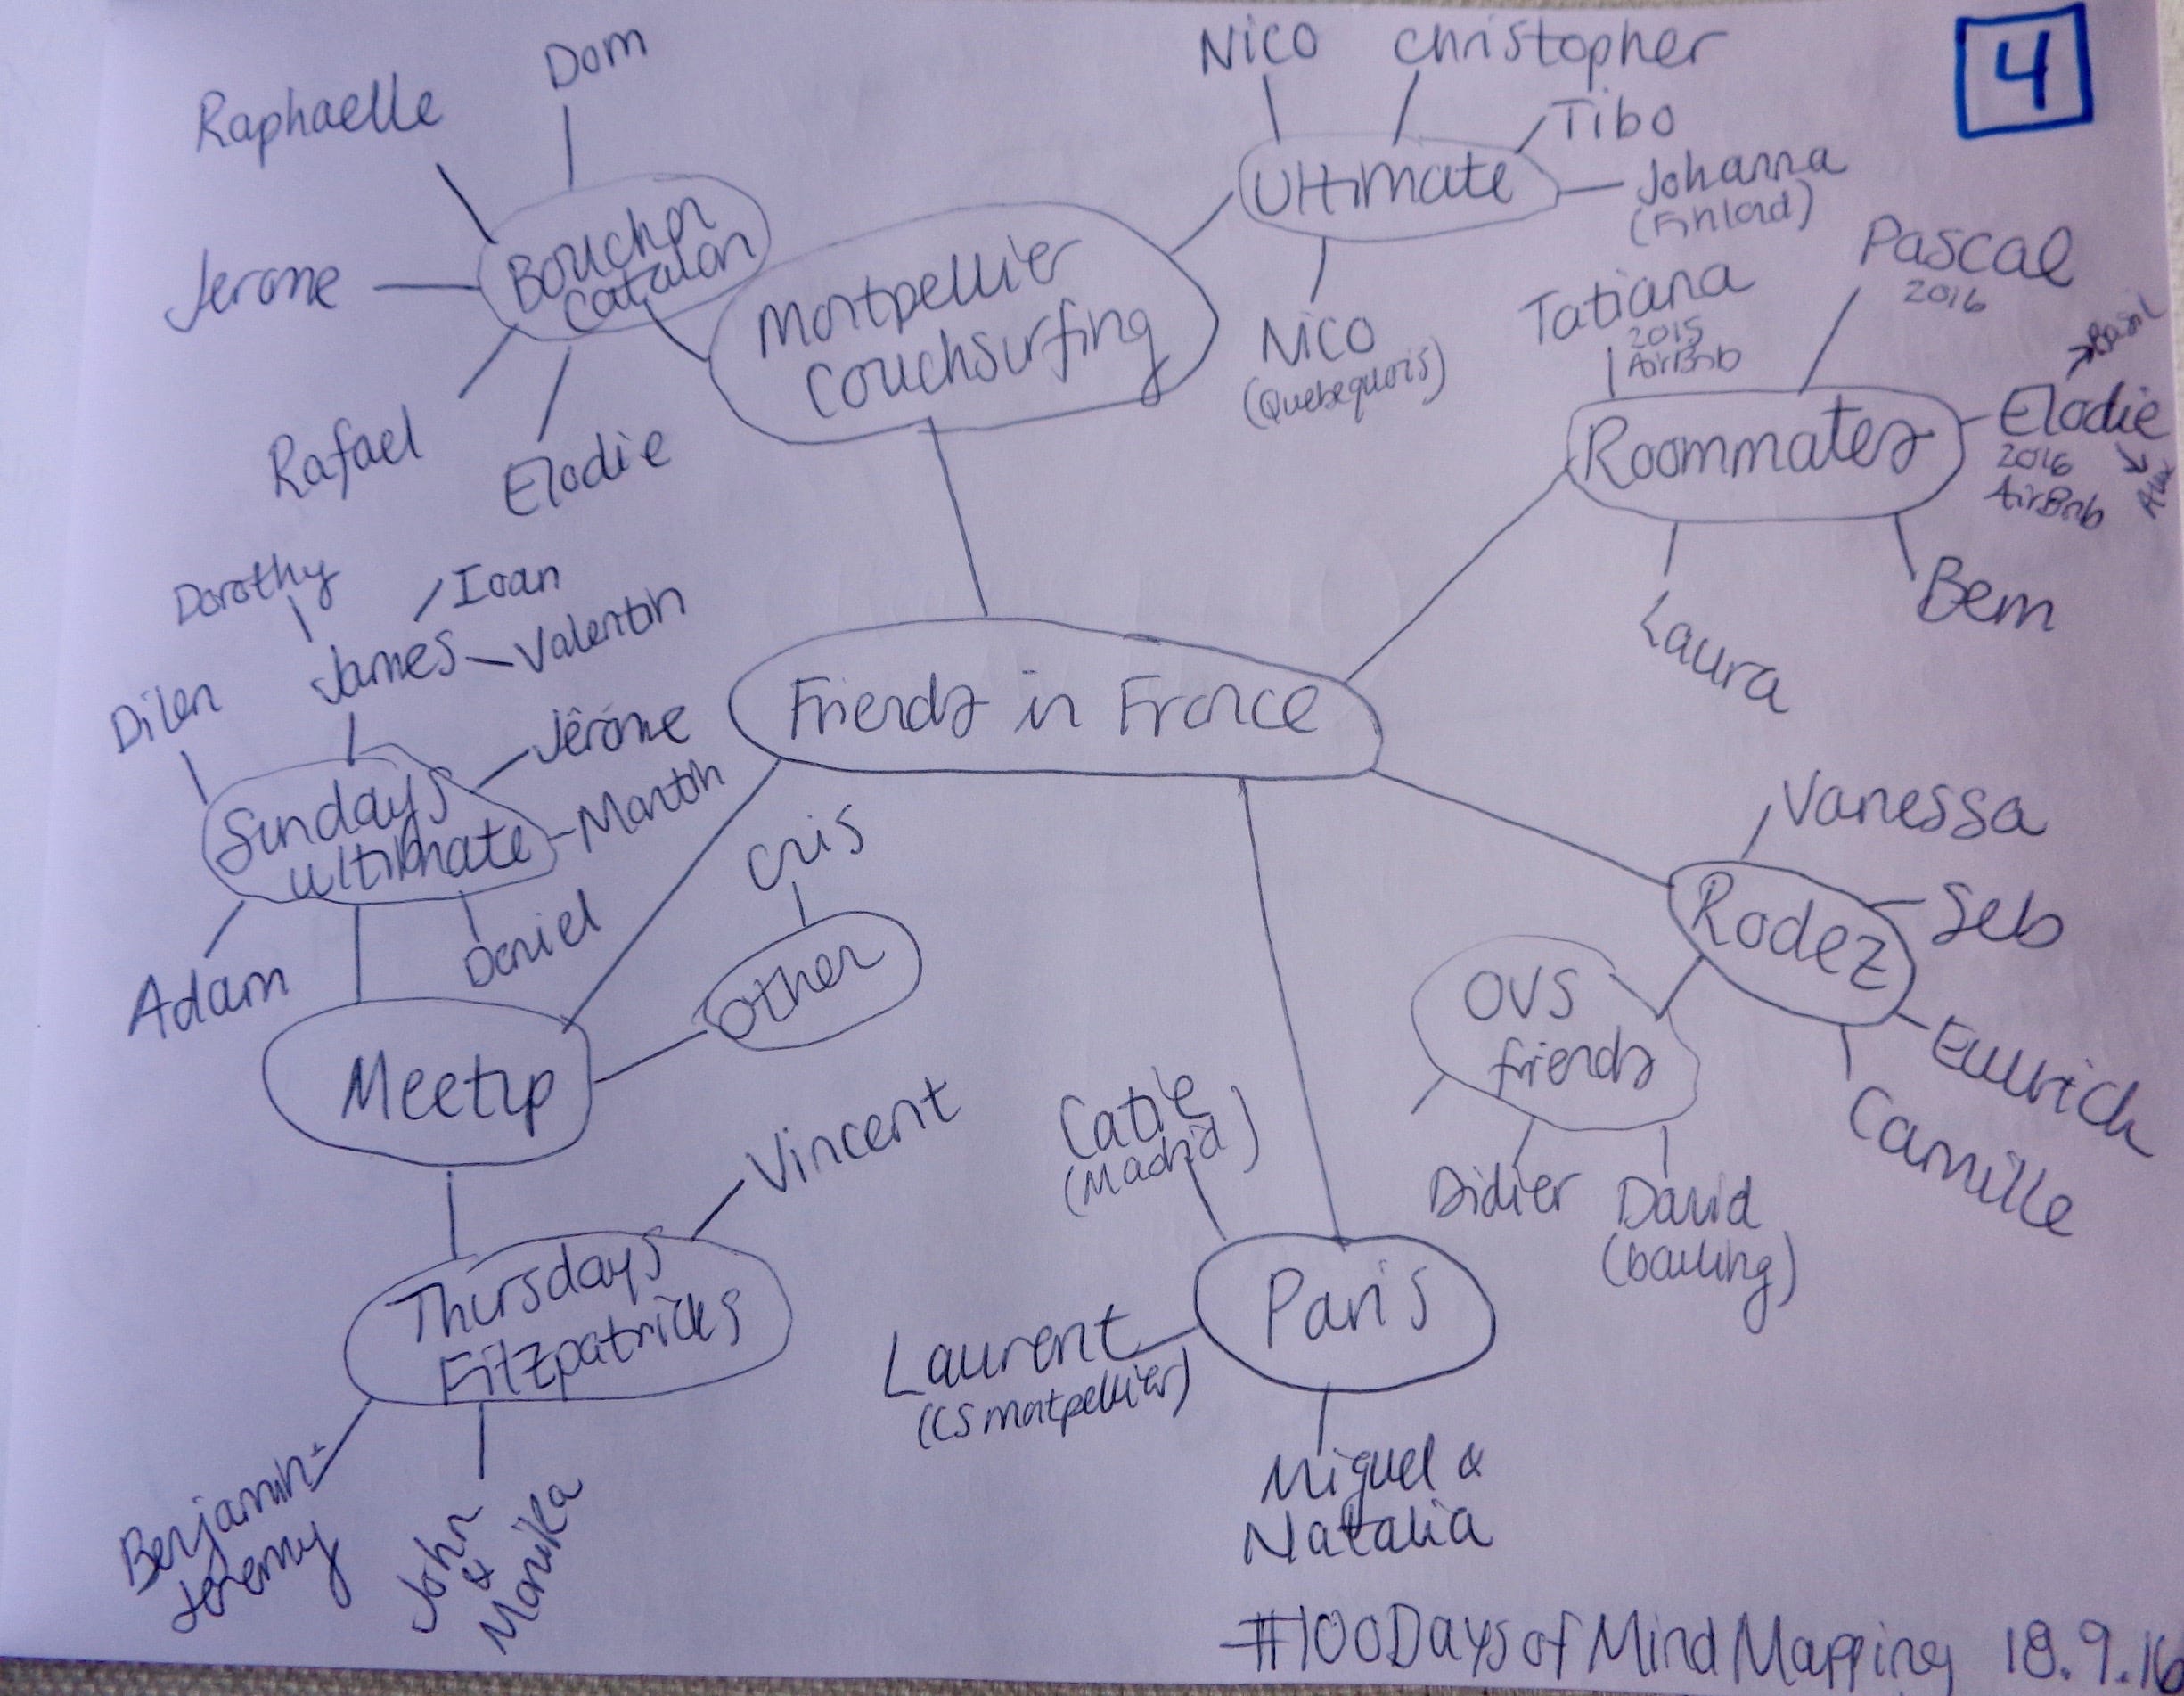 4
Dom
Raphaelle
Jerome
Bouchon
Catalan
Rafael
Elodie
Montpellier
Couchsurfing
Nico
Christopher
Tibo
Ultimate
Johanna
(Finland)
Nico
(Quebequois)
Tatiana
2015
AirBnb
Pascal
2016
Roommates
Basil
Elodie
2016
AirBnb
Bem
Laura
Friends in France
Dorothy
Ioan
James
Valentin
Dilen
Jérôme
Sundays
Ultimate
Martin
Adam
Daniel
Meetup
Other
Cris
Vincent
Thursdays
Fitzpatricks
Benjamin-
Jeremy
John
&
Monika
Vanessa
Rodez
Seb
Camille
OVS
friends
Didier
David
(bowling)
Catie
(Madrid)
Paris
Laurent
(CS Montpellier)
Miguel &
Natalia
#100DaysofMindMapping 18.9.16